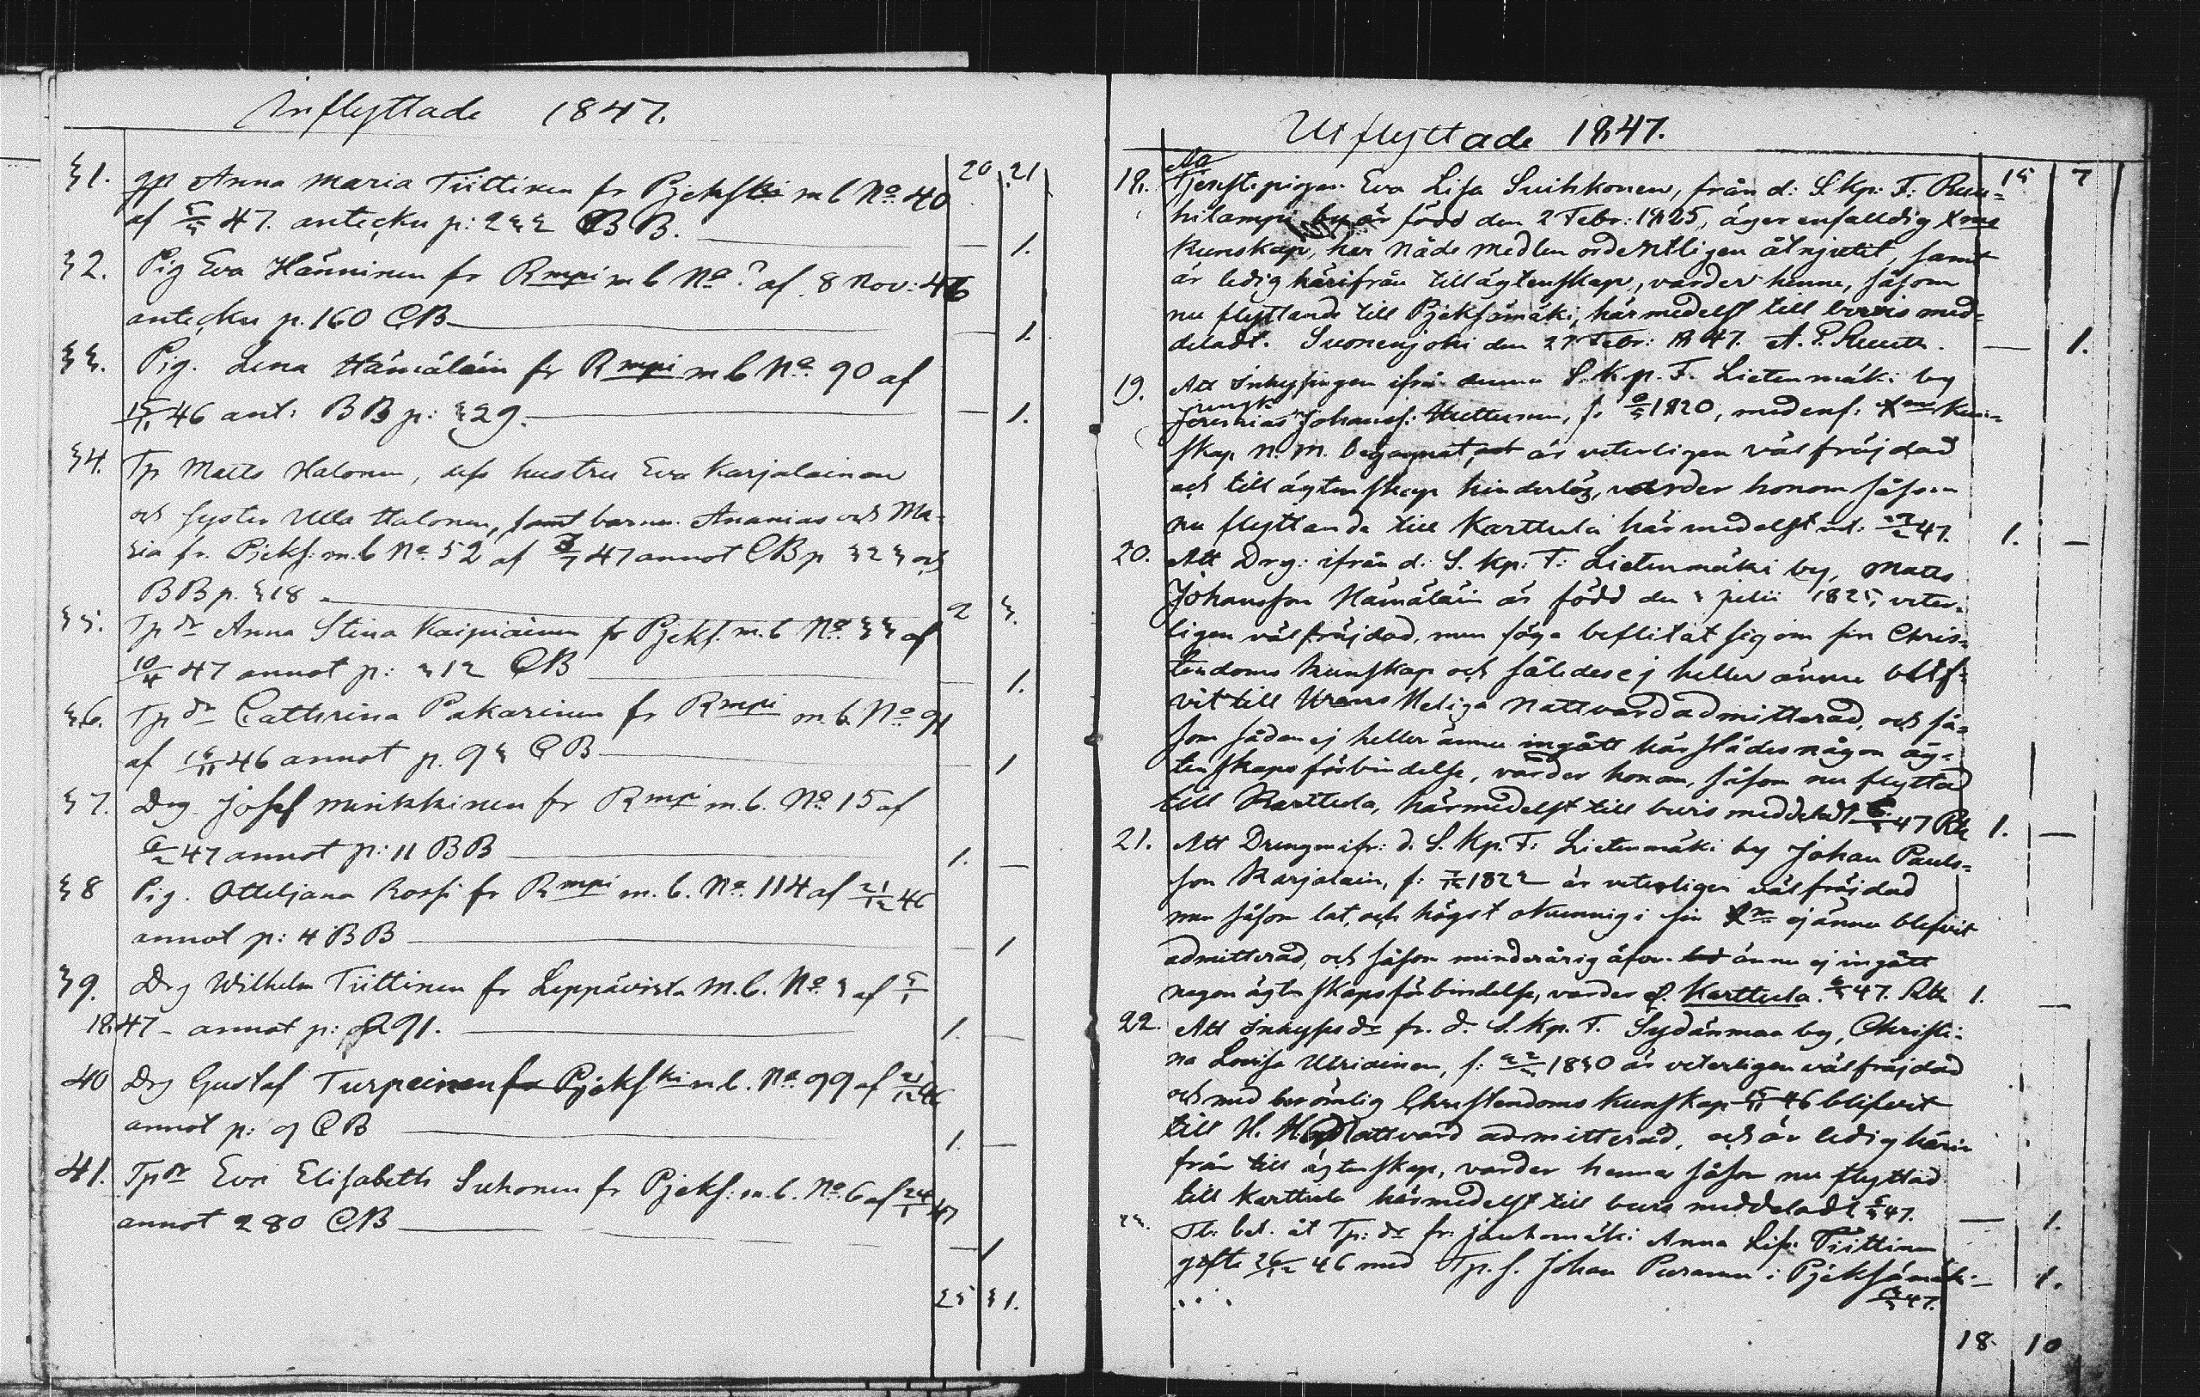 Inflyttade 1847.
20 21
31. gp Anna Maria Tiittinen fr Pjekski m b No 40
af 5/3 47. anteckn p: 232 BB. — 1.
32. Pig Eva Hänninen fr Rmpi m b No ? af 8 Nov: 46
anteckn p. 160 CB — 1.
33. Pig. Lena Hämäläin fr Rmpi m b No 90 af
15/11 46 ant: BB p: 329. — 1.
34. Tp Matts Halonen, dess hustru Eva Karjalainen
och syster Ulla Halonen, samt barnen Ananias och Ma-
ria fr. Pjeks: m. b No 52 af 47 annot CB p 323 och
BB p. 318. 2 3.
35. Tp dr Anna Stina Kaipiainen fr Pjeks. m. b No 33 af
10/4 47 annot p: 312 CB — 1.
36. Tp dr Cathrina Pakarinen fr Rmpi m. b. No 91
af 15/11 46 annot p. 93 CB — 1
37. Drg Josef Minkkinen fr Rmpi m. b. No 15 af
47 annot p: 11 BB 1. —
38 Pig. Otteljana Rossi fr Rmpi m. b. No 114 af 21/12 46
annot p: 4 BB — 1
39. Drg Wilhelm Tiittinen fr Leppävirta m. b. No 3 af
1847 - annot p: 291. 1. —
40 Drg Gustaf Turpeinen fr Pjekski m b. No 99 af 21/12 46
annot p: 9 CB 1. —
41. Tp dr Eva Elisabeth Suhonen fr Pjeks: m. b. No 6 af 24/1 47
annot 280 CB — 1
25 31.
Utflyttade 1847.
15 7
18. Tjenstepigan Eva Lisa Suihkonen, från d: S. Kp: F:
hilampi by är född den 2 Febr: 1825, äger enfalldig Xms
kunskap, har Nådemedlen ordentligen åtnjutit, samt
är ledig härifrån till ägtenskap, varder henne, såsom
nu flyttande till Pjeksämäki, härmedelst till bevis med-
deladt. Suonenjoki den 27 Febr: 1847. — 1.
19. Att Inhysingen ifrån denna S. Kp. F. Lietenmäki by
Jeremias Johanss: Huttunen, f. 1820, med enf: Xms Kun-
skap n. m. begagnat, är veterligen välfräjdad
och till ägtenskap hinderlös, varder honom såsom
nu flyttande till Karttula härmedelst 47. 1. —
20. Att Drg: ifrån d: S. Kp: F: Lietenmäki by, Matts
Johansson Hämäläin är född den 3 Julii 1825, veter-
ligen välfräjdad, men föga beflitat sig om sin Chris-
tendoms kunskap och således ej heller ännu blif-
vit till Herrans Heliga Nattvard admitterad, och så-
som sådan ej heller ännu ingått härstädes någon äg-
tenskaps förbindelse, varder honom, såsom nu flyttad
till Karttula, härmedelst till bevis meddeladt 47 1. —
21. Att Drengen ifr: d. S. Kp. F: Lietenmäki by Johan Pauls-
son Karjalain, f: 7/12 1822 är veterligen välfräjdad
men såsom lat, och högst okunnig i sin Xm ej ännu blefvit
admitterad, och såsom minderårig äfven ännu ej ingått
någon ägtenskapsförbindelse, varder Karttula. 47. 1. —
22. Att Inhyses dr fr. d. S. Kp. F. Sydänmaa by, Christi-
na Lovisa Utriainen, f: 1830 är veterligen välfräjdad
och med berömlig Christendoms kunskap 15/11 46 blifvit
till H. H. Nattvard admitterad, och är ledig häri-
från till ägtenskap, varder henne såsom nu flyttad
till Karttula härmedelst till bevis meddeladt 47. — 1.
23. bet. åt Tp: dr fr: Jauhomäki Anna Lis: Tiittinen
gifte 26/12 46 med Tp. s. Johan Puranen i Pjeksämäki — 1.
47.
18. 10